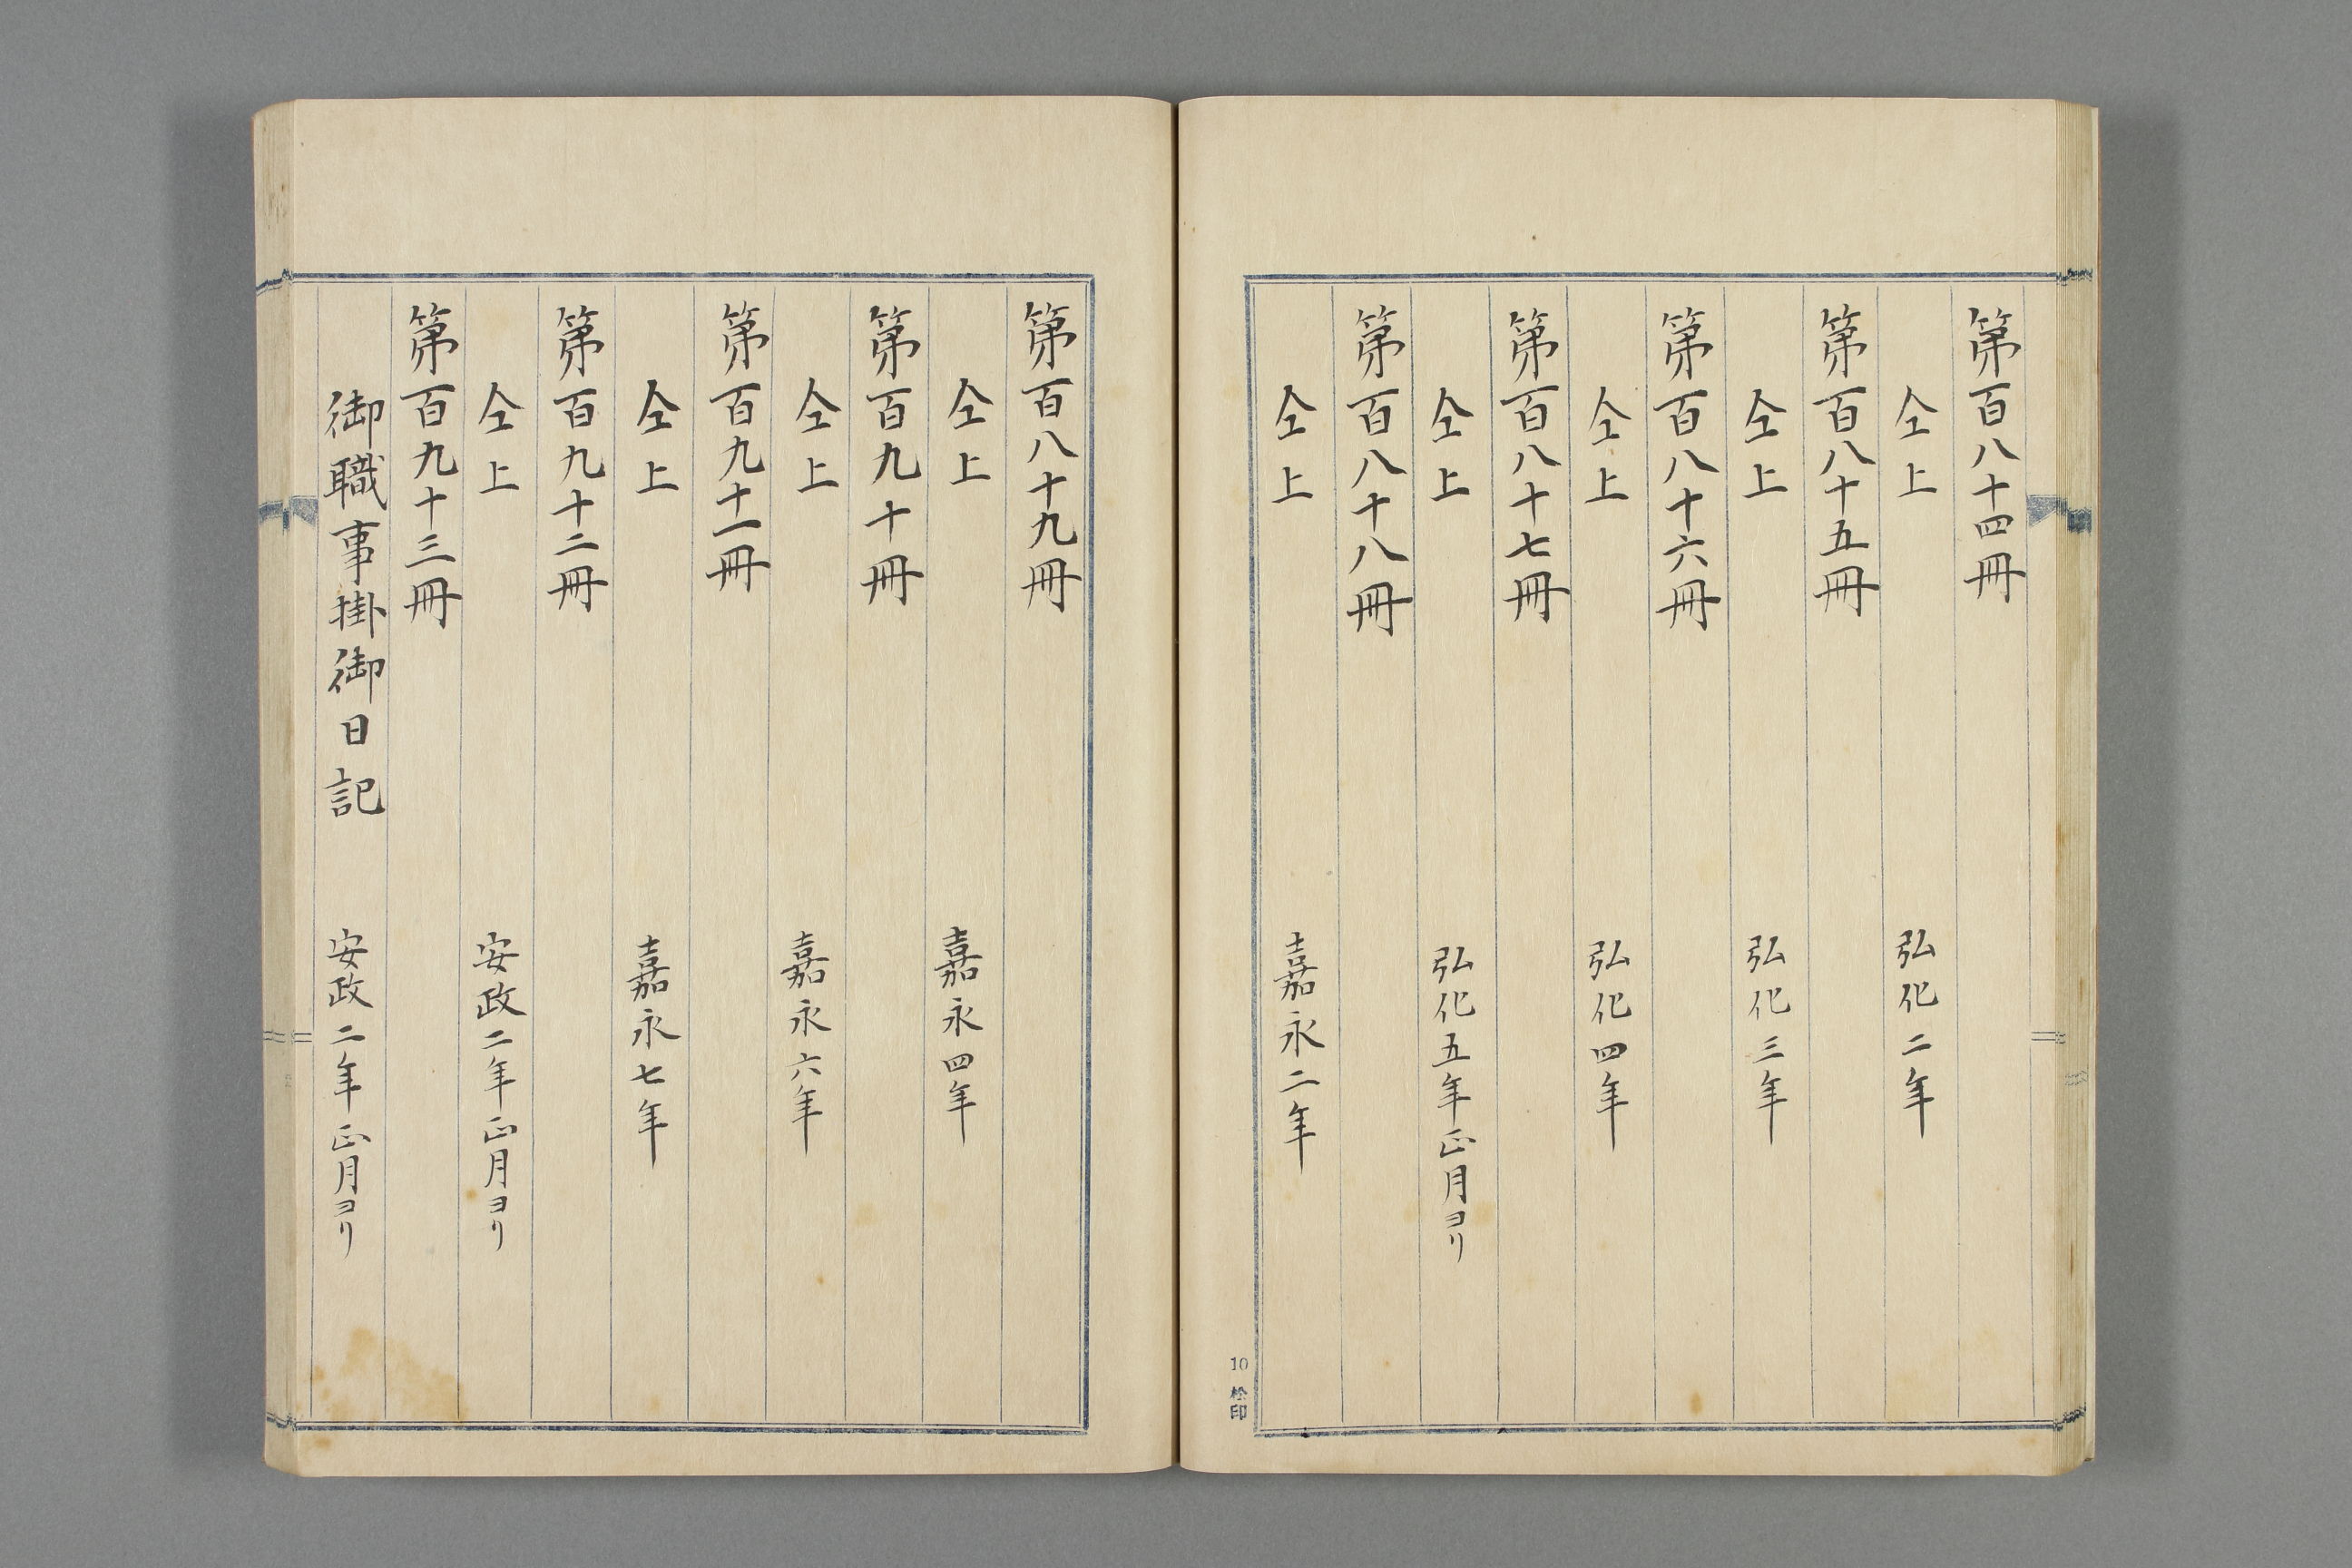 第百八十四冊
仝上 弘化二年
第百八十五冊
仝上 弘化三年
第百八十六冊
仝上 弘化四年
第百八十七冊
仝上 弘化五年正月ヨリ
第百八十八冊
仝上 嘉永二年
10 松印
第百八十九冊
仝上 嘉永四年
第百九十冊
仝上 嘉永六年
第百九十一冊
仝上 嘉永七年
第百九十二冊
仝上 安政二年正月ヨリ
第百九十三冊
御職事掛御日記 安政二年正月ヨリ